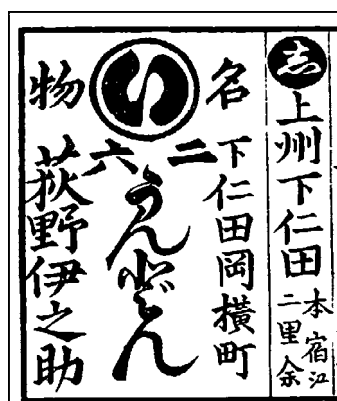 志
上州下仁田
本宿江
二里余
名物
い
下仁田岡横町
二六
うんどん
荻野伊之助